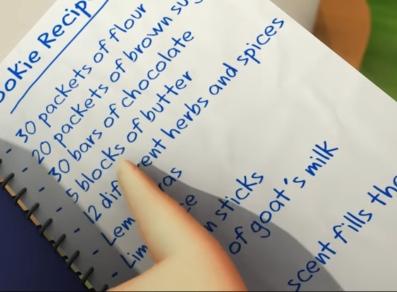 ookie Recip
- 30 packets of flour
- 20 packets of brown su
- 30 bars of chocolate
- 5 blocks of butter
- 2 dif ent herbs and spices
- Lem ras
- Lim e
n sticks
of goat's milk
scent fills the